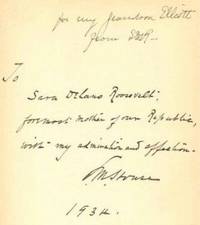 for my grandson Elliott
from SDR
To
Sara Delano Roosevelt,
foremost mother of our Republic,
with my admiration and affection.
EM House
1934.